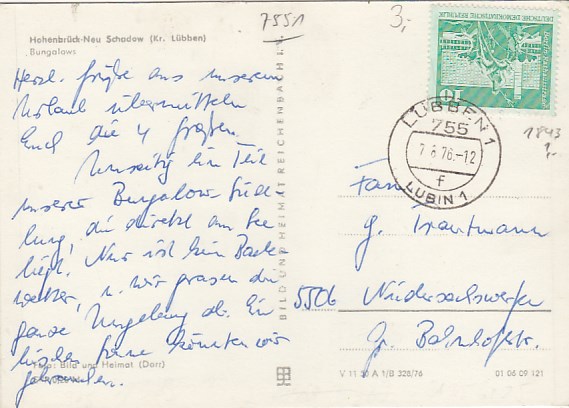 7551
3,-
Hohenbrück-Neu Schadow (Kr. Lübben)
Bungalows
Herzl. Grüße aus unserem
Urlaub übermitteln
Euch die 4 großen.
Umseitig ein Teil
unserer Bungalow-Sied-
lung, die direkt am See
liegt. Nur ist kein Bade-
wetter, u. wir grasen die
ganze Umgebung ab. Ein
bißchen Sonne könnten wir
gebrauchen.
Foto: Bild und Heimat (Darr)
BILD UND HEIMAT REICHENBACH I. V.
DEUTSCHE DEMOKRATISCHE REPUBLIK
10
LÜBBEN 1
755
7.8.76.-12
f
LUBIN 1
1843
1,-
Fam.
G. Trautmann
5506 Niedersachswerfen
Gr. Bahnhofstr.
V 11 30 A 1/B 328/76
01 06 09 121